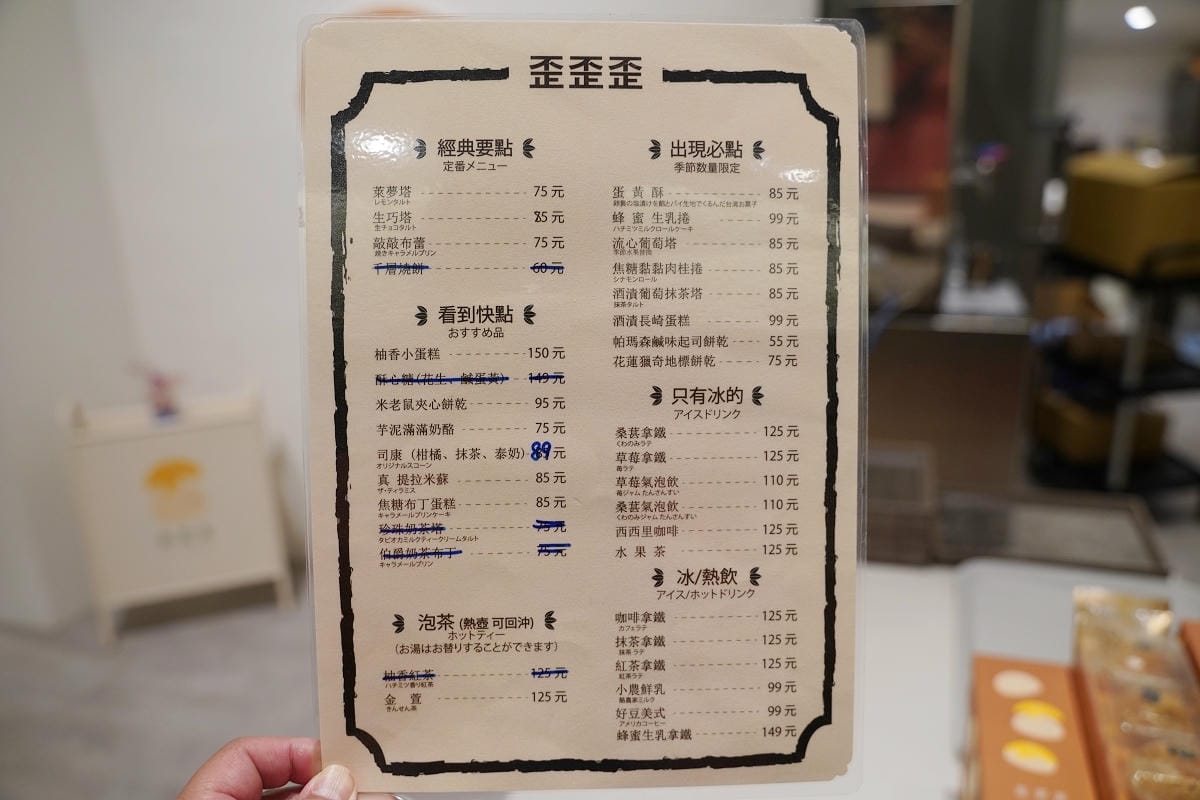 歪歪歪
經典要點
定番メニュー
萊夢塔 75 元
レモンタルト
生巧塔 85 元
生チョコタルト
敲敲布蕾 75 元
焼きキャラメルプリン
千層燒餅 60 元
看到快點
おすすめ品
柚香小蛋糕 150 元
酥心糖(花生、鹹蛋黃) 149 元
米老鼠夾心餅乾 95 元
芋泥滿滿奶酪 75 元
司康（柑橘、抹茶、泰奶) 89 元
オリジナルスコーン
真 提拉米蘇 85 元
ザ・ティラミス
焦糖布丁蛋糕 85 元
キャラメールプリンケーキ
珍珠奶茶塔 75 元
タピオカミルクティークリームタルト
伯爵奶茶布丁 75 元
キャラメールプリン
泡茶 (熱壺 可回沖)
ホットティー
（お湯はお替りすることができます）
柚香紅茶 125 元
ハチミツ香り紅茶
金 萱 125 元
きんせん茶
出現必點
季節数量限定
蛋 黃 酥 85 元
卵黄の塩漬けを餡とパイ生地でくるんだ台湾お菓子
蜂 蜜 生乳捲 99 元
ハチミツミルクロールケーキ
流心葡萄塔 85 元
季節水果替換
焦糖黏黏肉桂捲 85 元
シナモンロール
酒漬葡萄抹茶塔 85 元
抹茶タルト
酒漬長崎蛋糕 99 元
帕瑪森鹹味起司餅乾 55 元
花蓮獵奇地標餅乾 75 元
只有冰的
アイスドリンク
桑葚拿鐵 125 元
くわのみラテ
草莓拿鐵 125 元
苺ラテ
草莓氣泡飲 110 元
苺ジャム たんさんすい
桑葚氣泡飲 110 元
くわのみジャム たんさんすい
西西里咖啡 125 元
水 果 茶 125 元
冰/熱飲
アイス/ホットドリンク
咖啡拿鐵 125 元
カフェラテ
抹茶拿鐵 125 元
抹茶 ラテ
紅茶拿鐵 125 元
紅茶ラテ
小農鮮乳 99 元
酪農家ミルク
好豆美式 99 元
アメリカコーヒー
蜂蜜生乳拿鐵 149 元